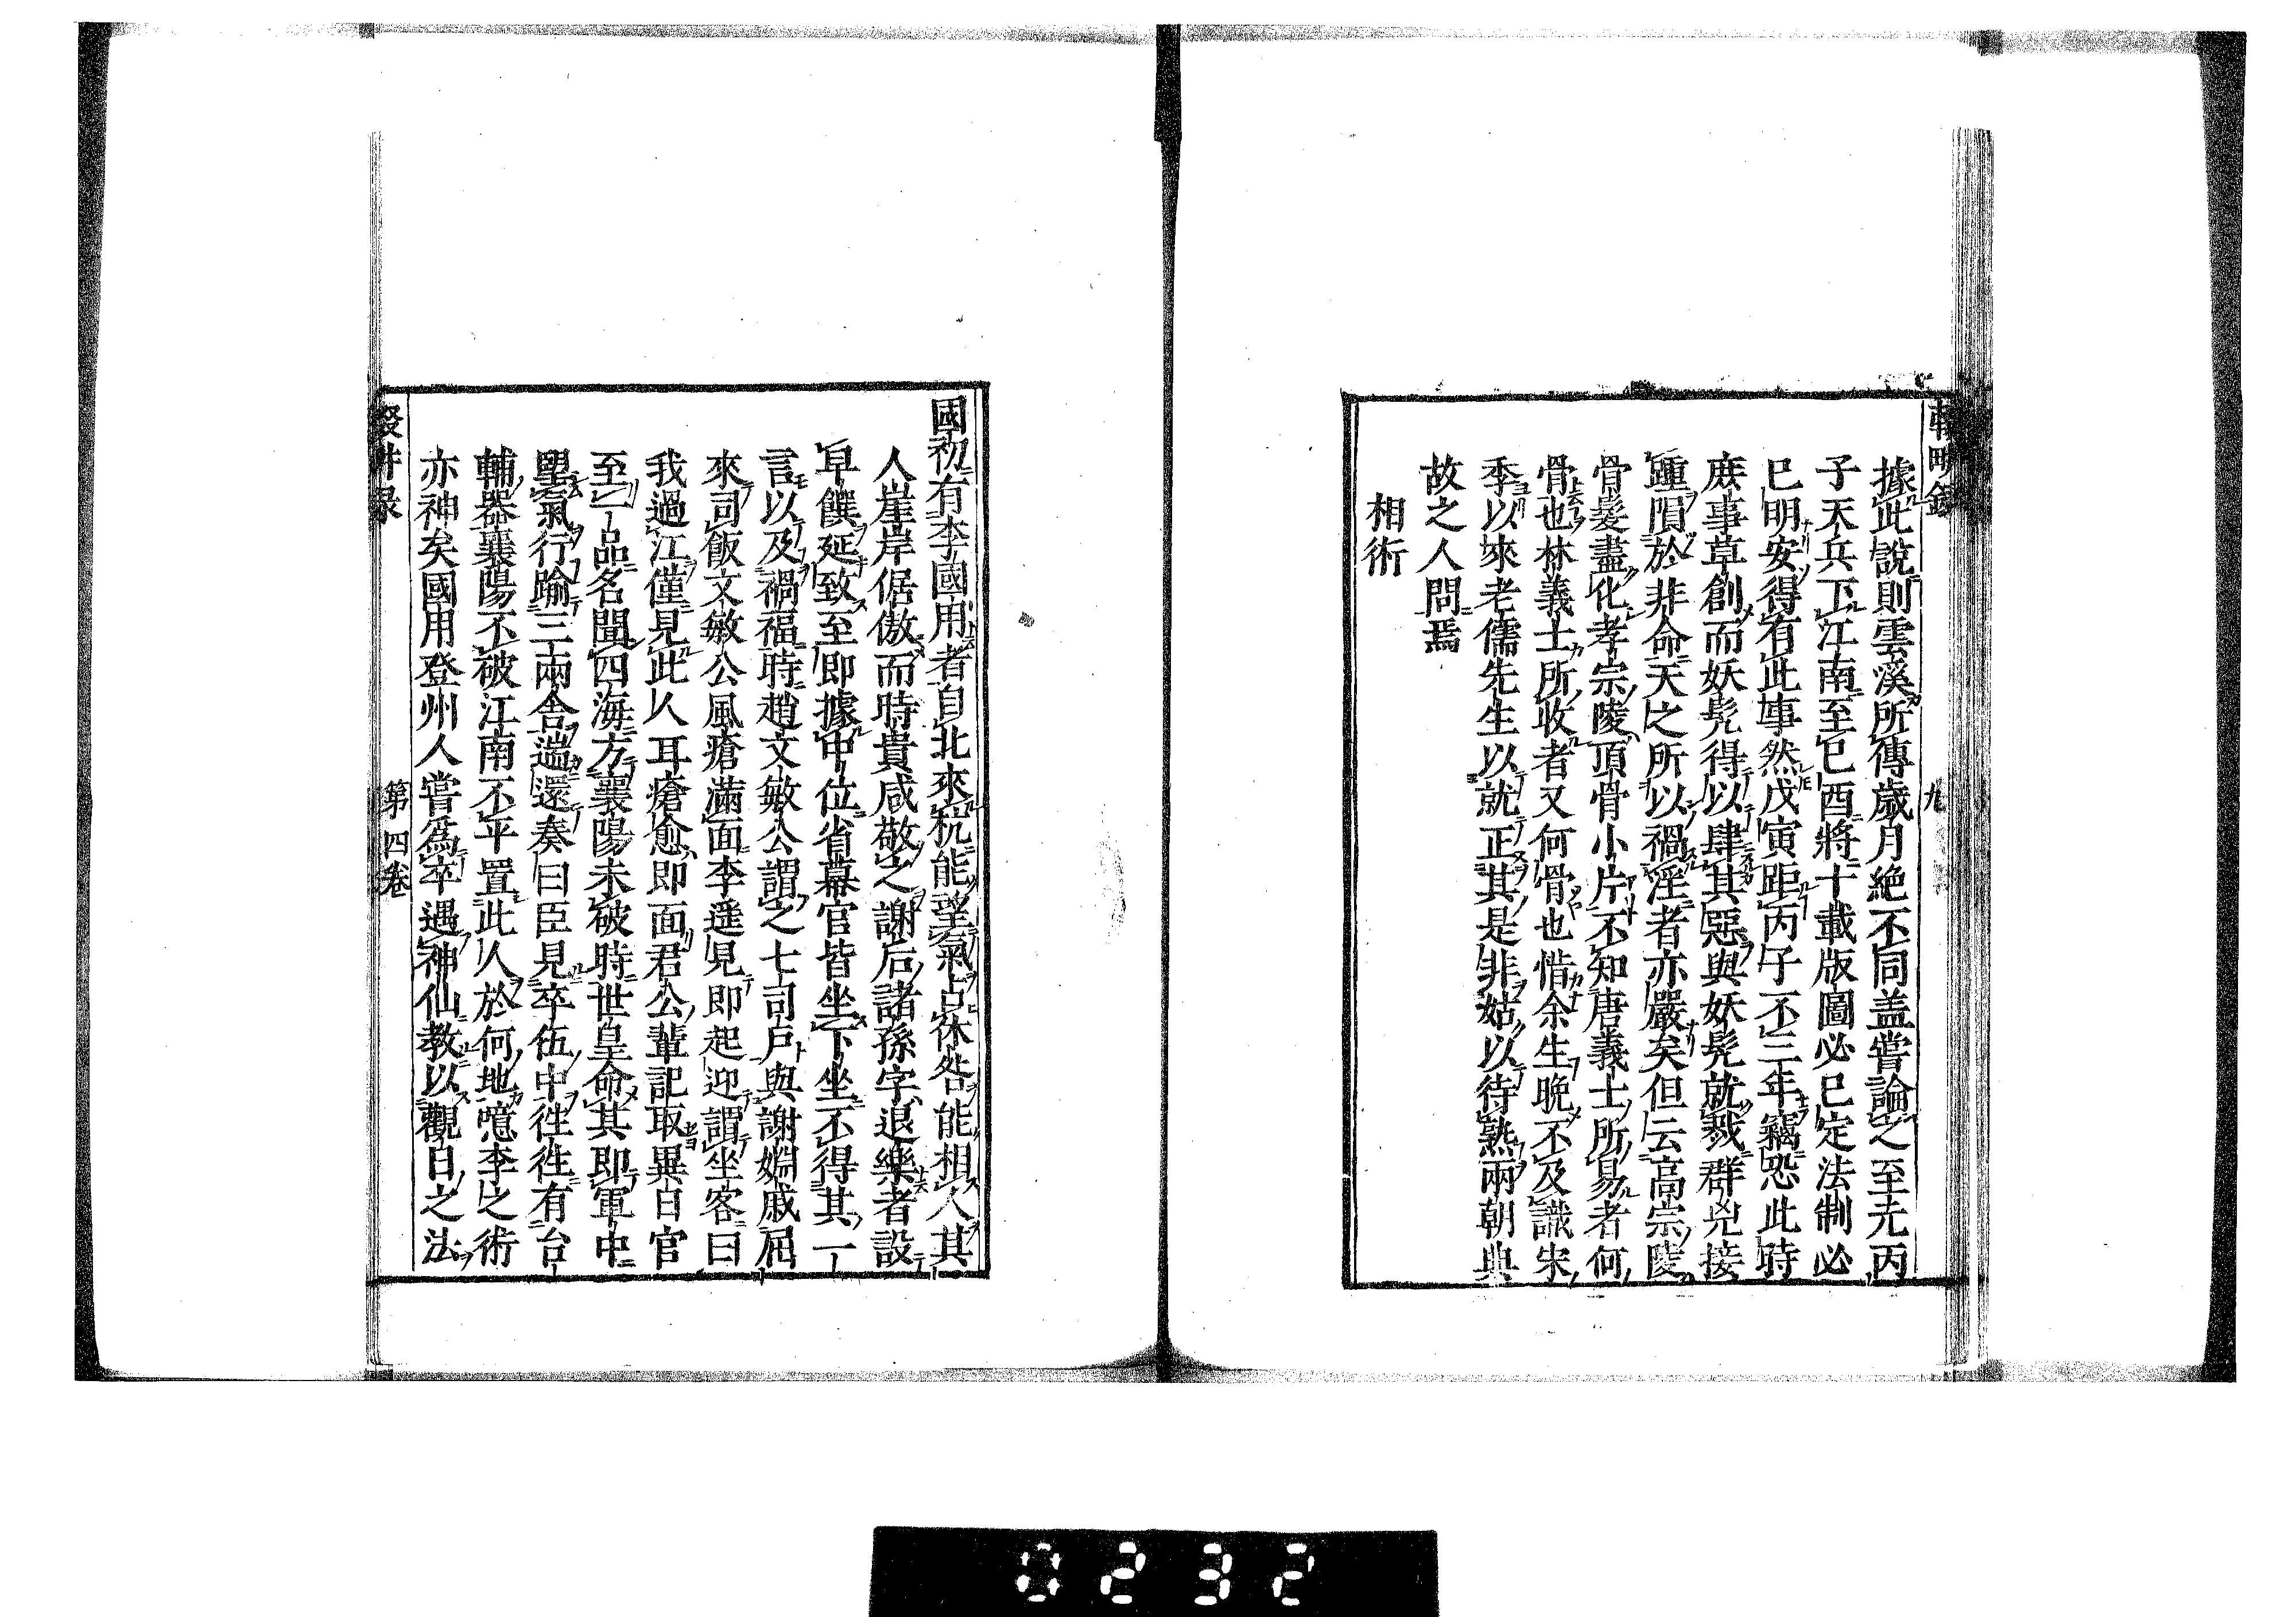 輟畊録
九
據此說則雲溪所傳歲月絶不同盖嘗論之至元丙
子天兵下江南至乙酉將十載版圖必已定法制必
已明安得有此事然戊寅距丙子不三年竊恐此時
庶事草創而妖髡得以肆其惡與妖髡就戮群兇接
踵隕於非命天之所以禍淫者亦嚴矣但云高宗陵
骨髮盡化孝宗陵頂骨小片不知唐義士所易者何
骨也林義士所收者又何骨也惜余生晩不及識宋
季以來老儒先生以就正其是非姑以待熟兩朝典
故之人問焉
相術
國初有李國用者自北來杭能望氣占休咎能相人其
人崖岸倨傲而時貴咸敬之謝后諸孫字退樂者設
早饌延致至即據中位省幕官皆坐下坐不得其一
言以及禍福時趙文敏公謂之七司戶與謝姻戚屈
來司飯文敏公風瘡滿面李遥見即起迎謂坐客曰
我過江僅見此人耳瘡愈即面君公輩記取異日官
至一品名聞四海方襄陽未破時世皇命其即軍中
望氣行踰三兩舍遄還奏曰臣見卒伍中徃徃有台
輔器襄陽不破江南不平置此人於何地噫李之術
亦神矣國用登州人嘗爲卒遇神仙教以觀日之法
第四卷